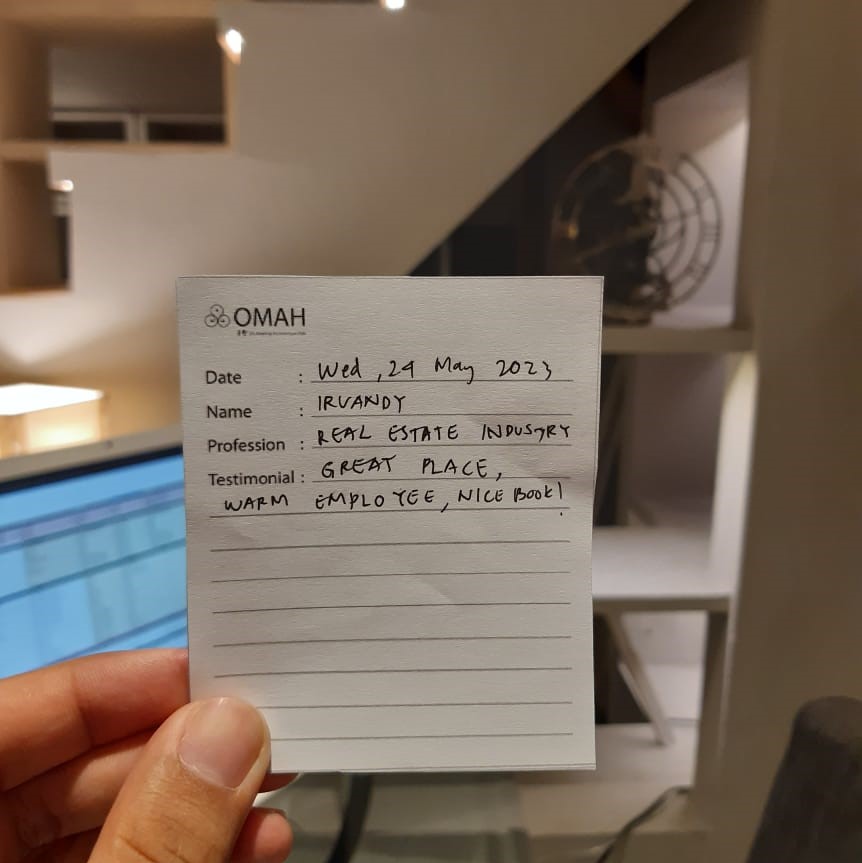 OMAH
Date : Wed, 24 May 2023
Name : IRVANDY
Profession : REAL ESTATE INDUSTRY
Testimonial : GREAT PLACE,
WARM EMPLOYEE, NICE Book!